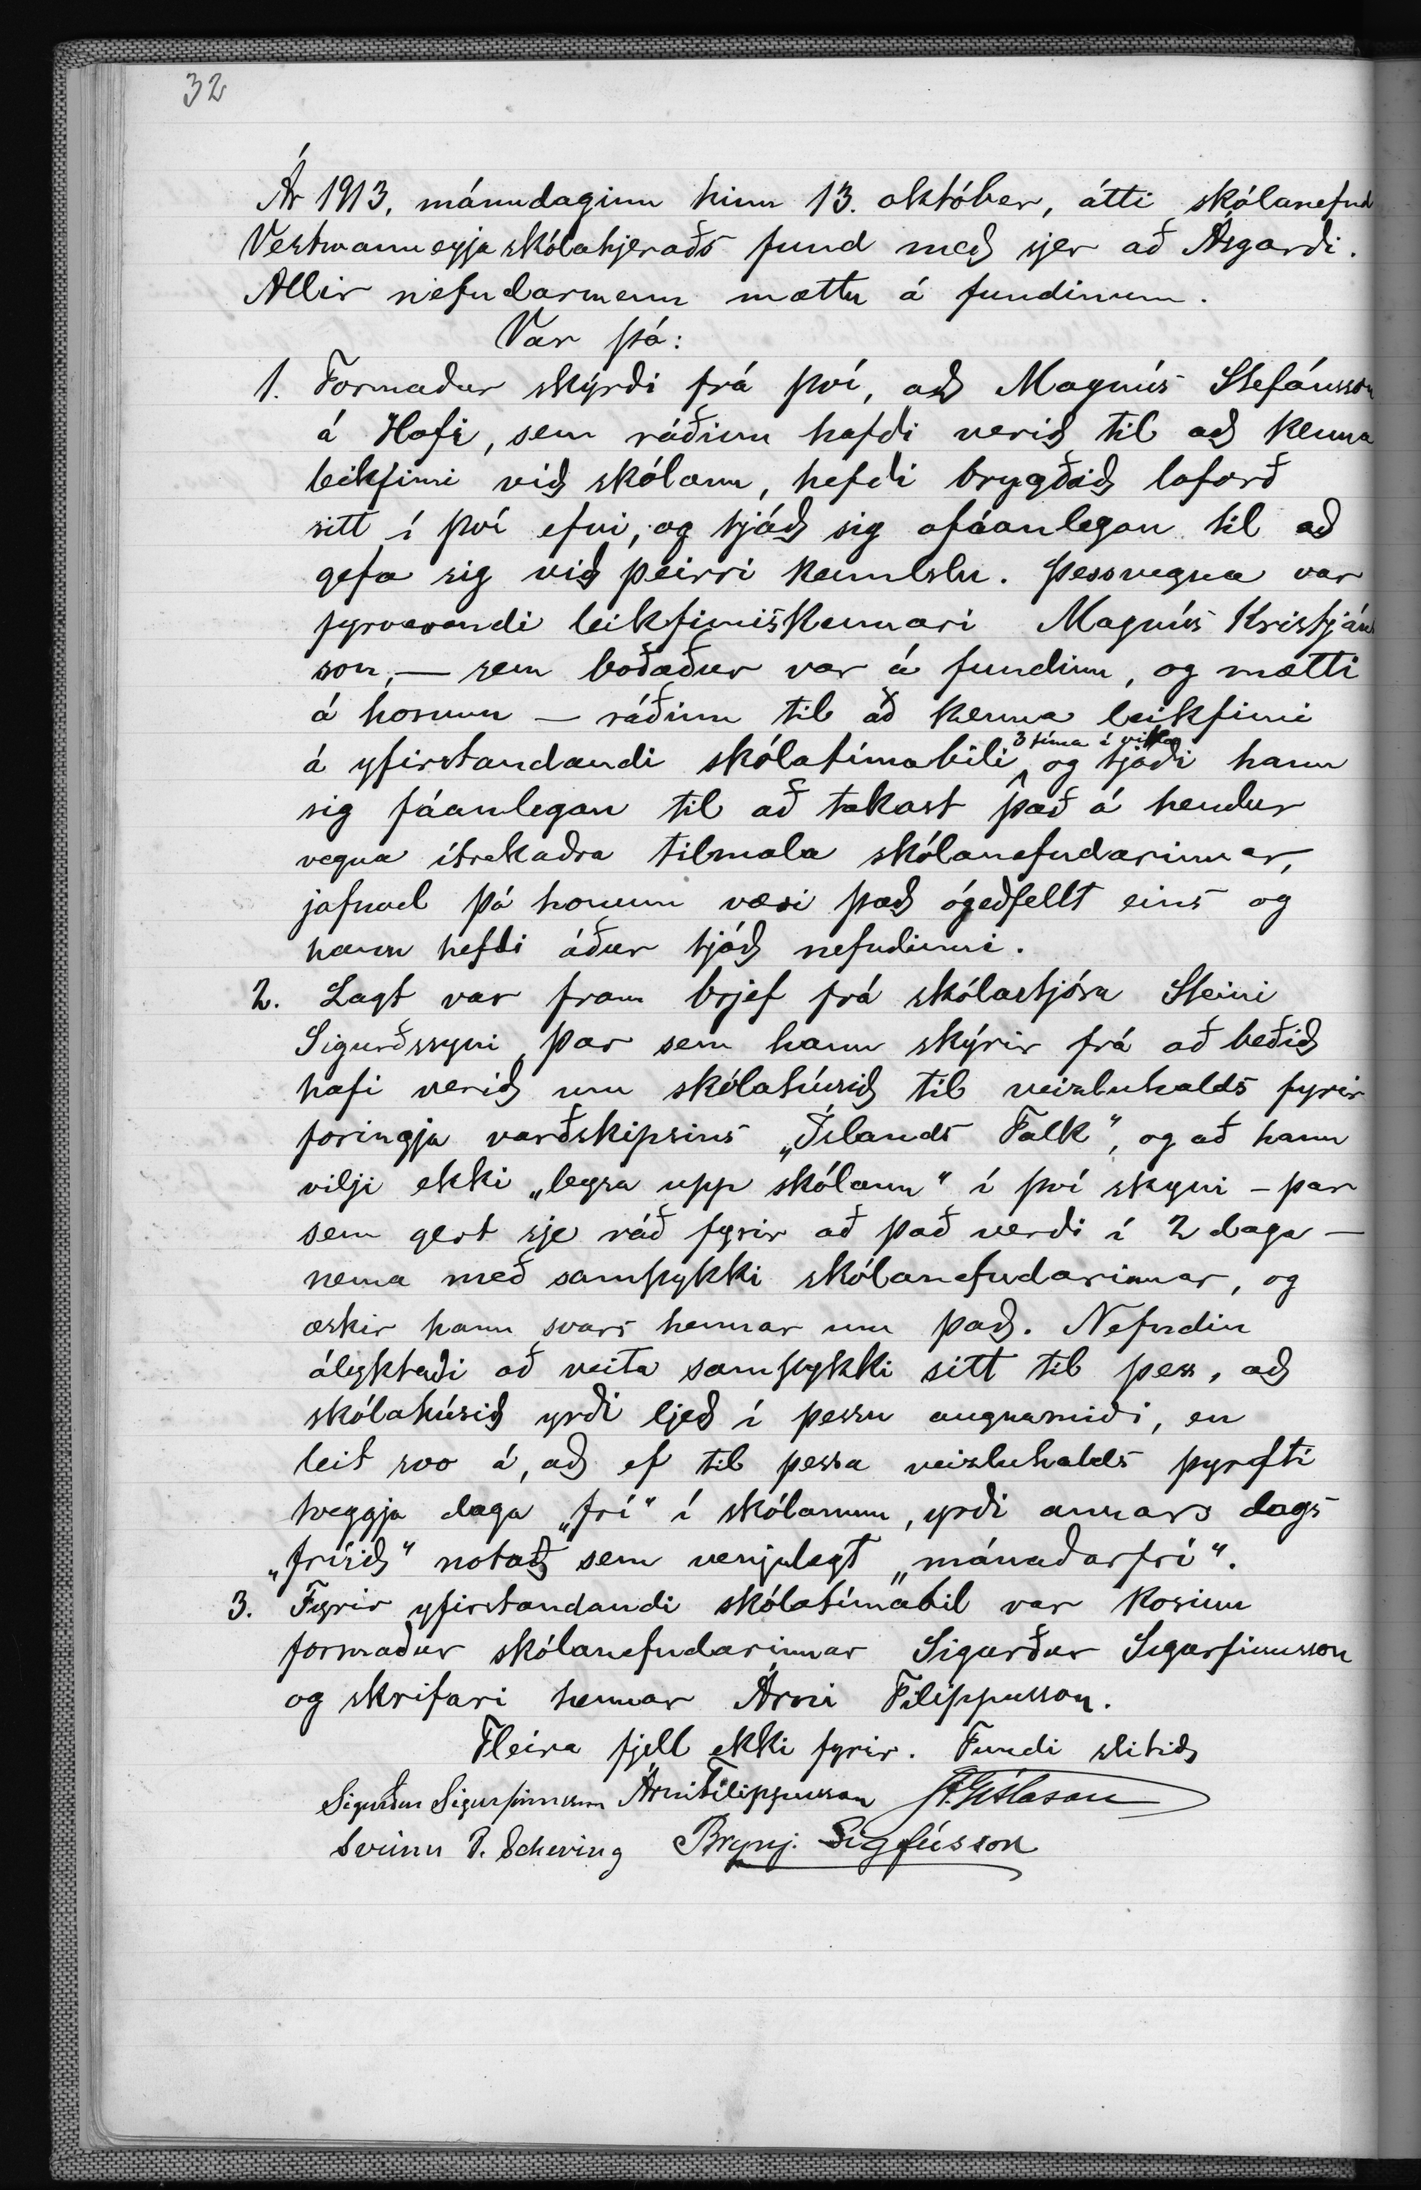 32
Ár 1913, mánudaginn hinn 13. október, átti skólanefnd
Vestmannneyja skólahjeraðs fund með sjer að Ásgarði.
Allir nefndarmenn mættu á fundinum.
Var þá:
1. Formaður skýrði frá því, að Magnús Stefánsson
á Hofi, sem ráðinn hafði verið til að kenna
leikfimi við skólann, hefði brugðið loforð
sitt í því efni, og tjáð sig ófáanlegan til að
gefa sig við þeirri kennslu. Þessvegna var
fyrverandi leikfimiskennari Magnús Kristjáns
son, — sem boðaður var á fundinn, og mætti
á honum — ráðinn til að kenna leikfimi
á yfirstandandi skólatímabili 3 tíma í viku og tjáði hann
sig fáanlegan til að takast það á hendur
vegna ítrekaðra tilmala skólanefndarinnar,
jafnvel þó honum væri það ógeðfellt eins og
hann hefði áður tjáð nefndinni.
2. Lagt var fram brjef frá skólastjóra Steini
Sigurðssyni, þar sem hann skýrir frá að beðið
hafi verið um skólahúsið til veizluhalds fyrir
foringja varðskipsins „Íslands Falk“, og að hann
vilji ekki „leysa upp skólann“ í því skyni – þar
sem gert sje ráð fyrir að það verði í 2 daga –
nema með samþykki skólanefndarinnar, og
æskir hann svars hennar um það. Nefndin
ályktaði að veita samþykki sitt til þess, að
skólahúsið yrði ljeð í þessu augnamiði, en
leit svo á, að ef til þessa veizluhalds þyrfti
tveggja daga „frí“ í skólanum, yrði annars dags
„fríið“ notað sem venjulegt „mánaðarfrí“.
3. Fyrir yfirstandandi skólatímabil var kosinn
formaður skólanefndarinnar Sigurður Sigurfinnsson
og skrifari hennar Árni Filippusson.
Fleira fjell ekki fyrir. Fundi slitið
Sigurður Sigurfinnsson Árni Filippusson St. Gíslason
Sveinn P. Scheving Brynj. Sigfússon